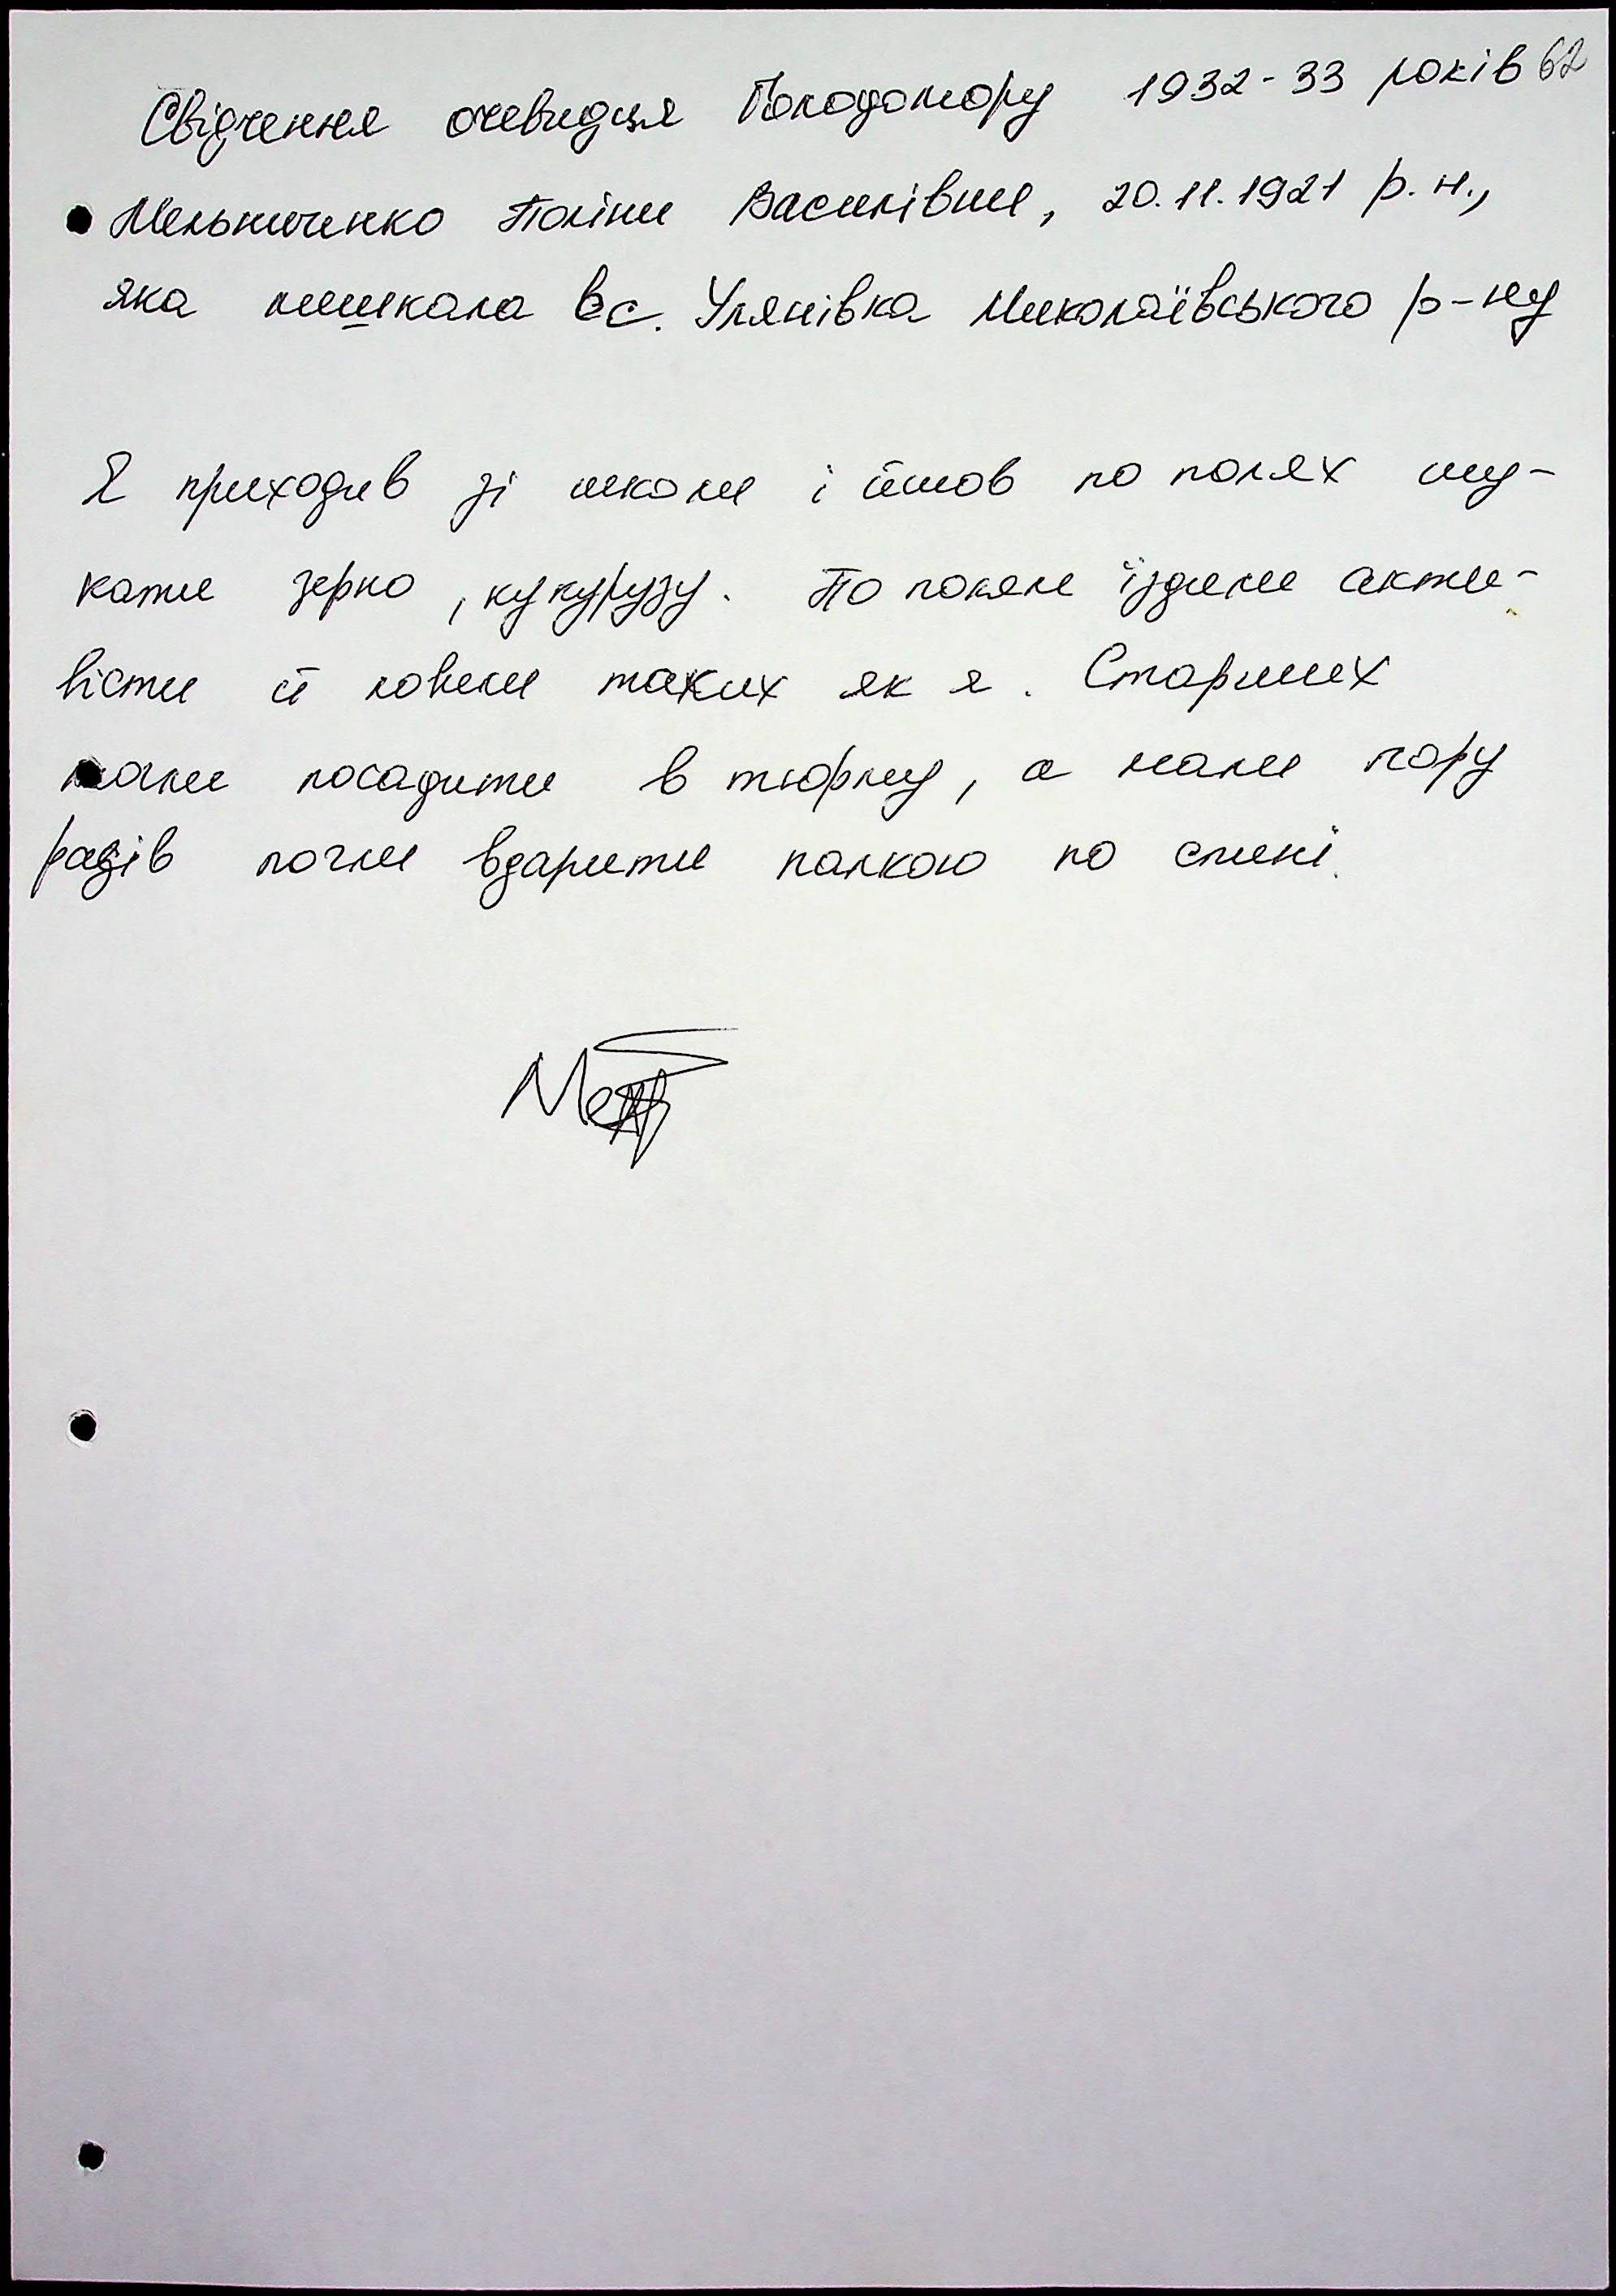 Свідчення очевидця Голодомору 1932-33 років 62
Мельниченко Поліни Василівни, 20.11.1921 р.н.,
яка мешкала в с. Улянівка Миколаївського р-ну
Я приходив зі школи і йшов по полях шу-
кати зерно, кукурузу. По полям їздили акти-
вісти й ловили таких як я. Старших
могли посадити в тюрму, а мали пару
разів могли вдарити палкою по спині.